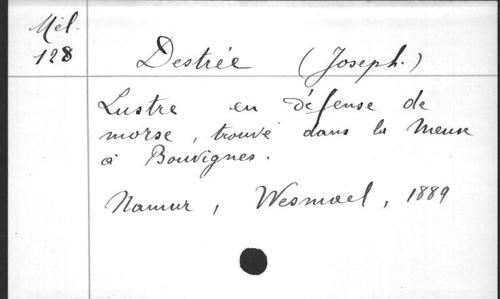 Mél. 128
Destrée (Joseph.)
Lustre en défense de
morse, trouvé dans la Meuse
à Bouvignes.
Namur, Wesmael, 1889